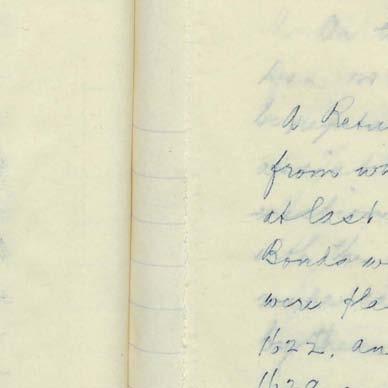 A Retu
from wh
at last
Bonds w
were pla
1622, an
1629